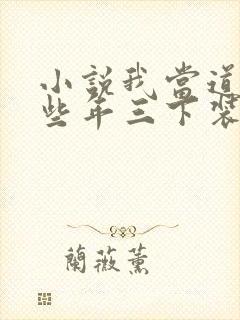 小說我當道
些年三下裝
蘭薇薰